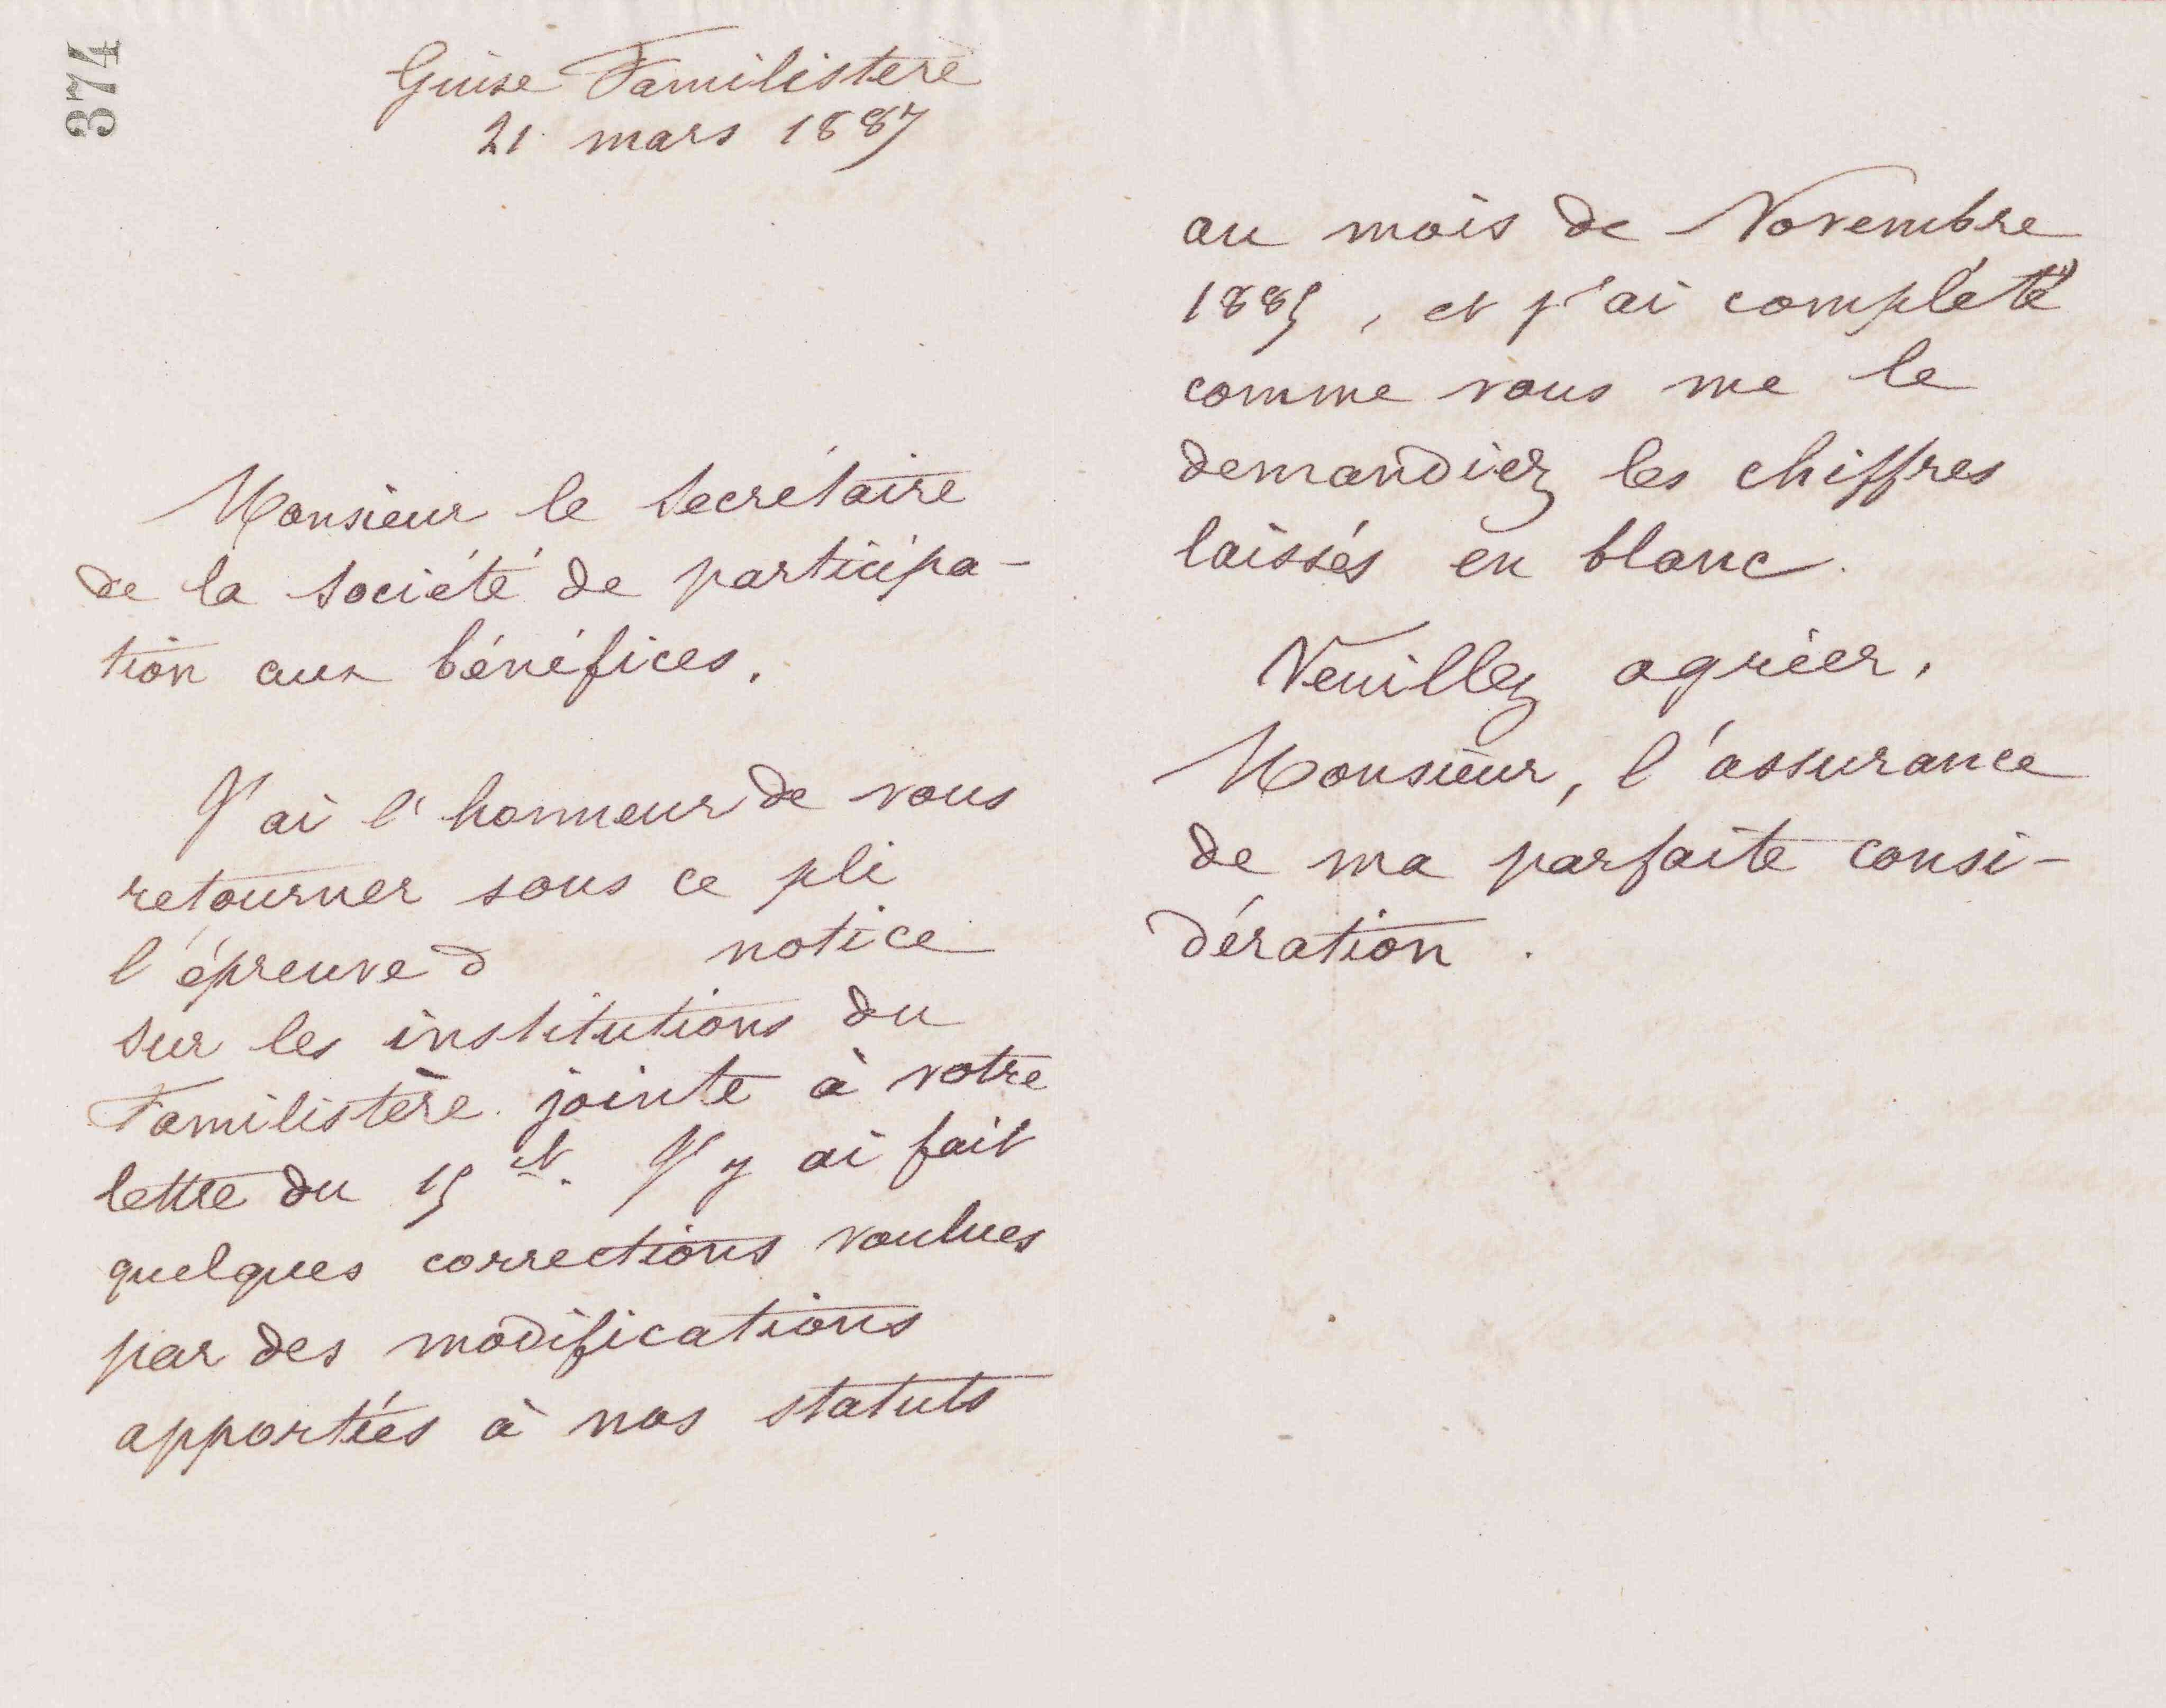 374
Guise Familistère
21 mars 1887
Monsieur le Secrétaire
de la Société de participa-
tion aux bénéfices,
J'ai l'honneur de vous
retourner sous ce pli
l'épreuve d notice
sur les institutions du
Familistère jointe à votre
lettre du 15 ct. J'y ai fait
quelques corrections voulues
par des modifications
apportées à nos statuts
au mois de Novembre
1885, et j'ai complété
comme vous me le
demandiez les chiffres
laissés en blanc.
Veuillez agréer,
Monsieur, l'assurance
de ma parfaite consi-
dération.